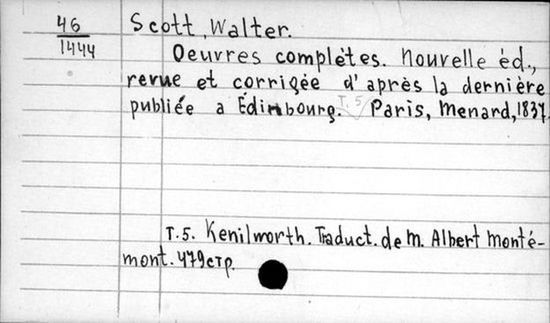 46
1444
Scott, Walter.
Oeuvres complètes. Nouvelle éd.,
revue et corrigée d'après la dernière
publiée a Édimbourg. T. 5 Paris, Menard, 1837.
T. 5. Kenilworth. Traduct. de M. Albert Monté-
mont. 479 стр.